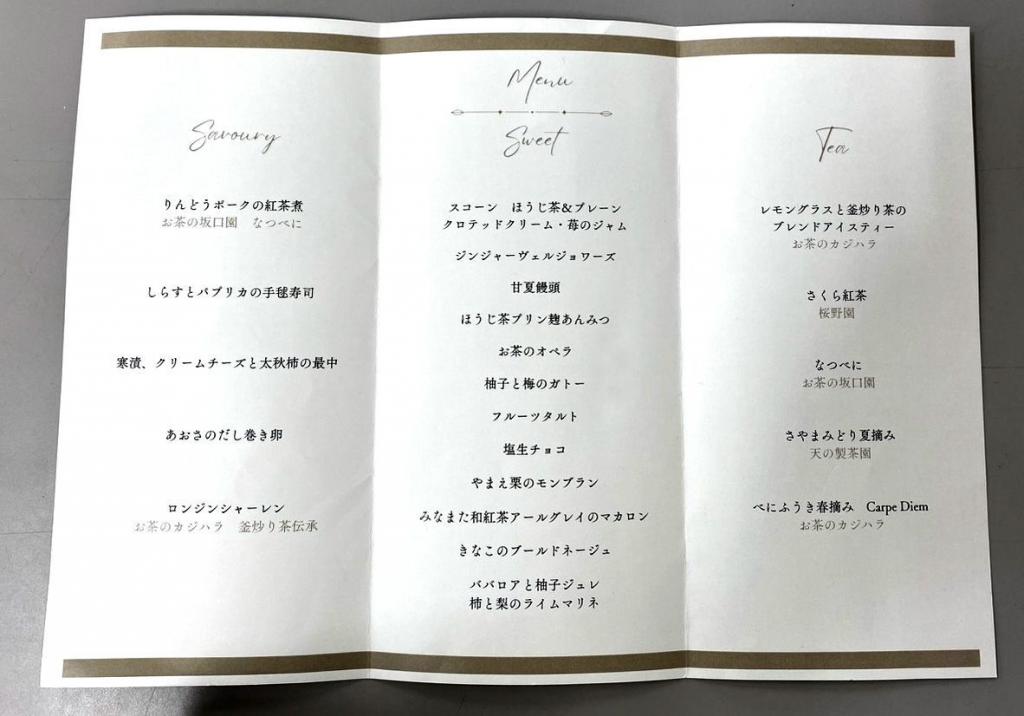 Menu
Savoury
りんどうポークの紅茶煮
お茶の坂口園　なつべに
しらすとパプリカの手毬寿司
寒漬、クリームチーズと太秋柿の最中
あおさのだし巻き卵
ロンジンシャーレン
お茶のカジハラ　釜炒り茶伝承
Sweet
スコーン　ほうじ茶＆プレーン
クロテッドクリーム・苺のジャム
ジンジャーヴェルジョワーズ
甘夏饅頭
ほうじ茶プリン麹あんみつ
お茶のオペラ
柚子と梅のガトー
フルーツタルト
塩生チョコ
やまえ栗のモンブラン
みなまた和紅茶アールグレイのマカロン
きなこのブールドネージュ
ババロアと柚子ジュレ
柿と梨のライムマリネ
Tea
レモングラスと釜炒り茶の
ブレンドアイスティー
お茶のカジハラ
さくら紅茶
桜野園
なつべに
お茶の坂口園
さやまみどり夏摘み
天の製茶園
べにふうき春摘み　Carpe Diem
お茶のカジハラ